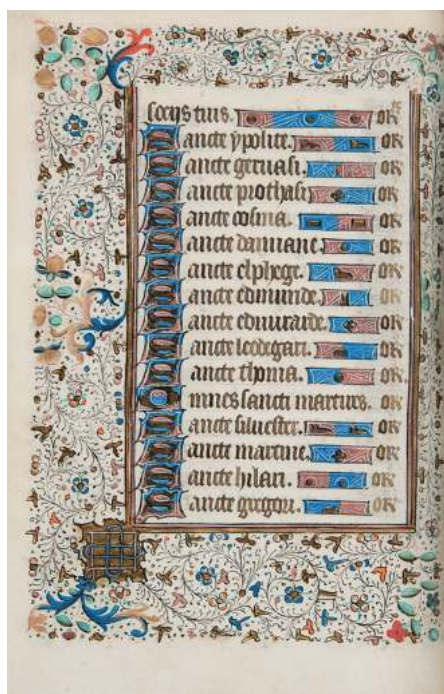 socijs tuis. or
Sancte ypolite. or
Sancte geruasi. or
Sancte prothasi. or
Sancte cosma. or
Sancte damiane. or
Sancte elphege. or
Sancte edmunde. or
Sancte edwarde. or
Sancte leodegari. or
Sancte thoma. or
Omnes sancti martires. or
Sancte siluester. or
Sancte martine. or
Sancte hilari. or
Sancte gregori. or